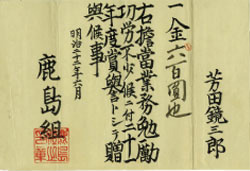 芳田鏡三郎
一金六百圓也
右擔當業務勉勵
功勞不少候ニ付二十
年度賞與金トシテ贈
與候事
明治二十三年六月
鹿島組